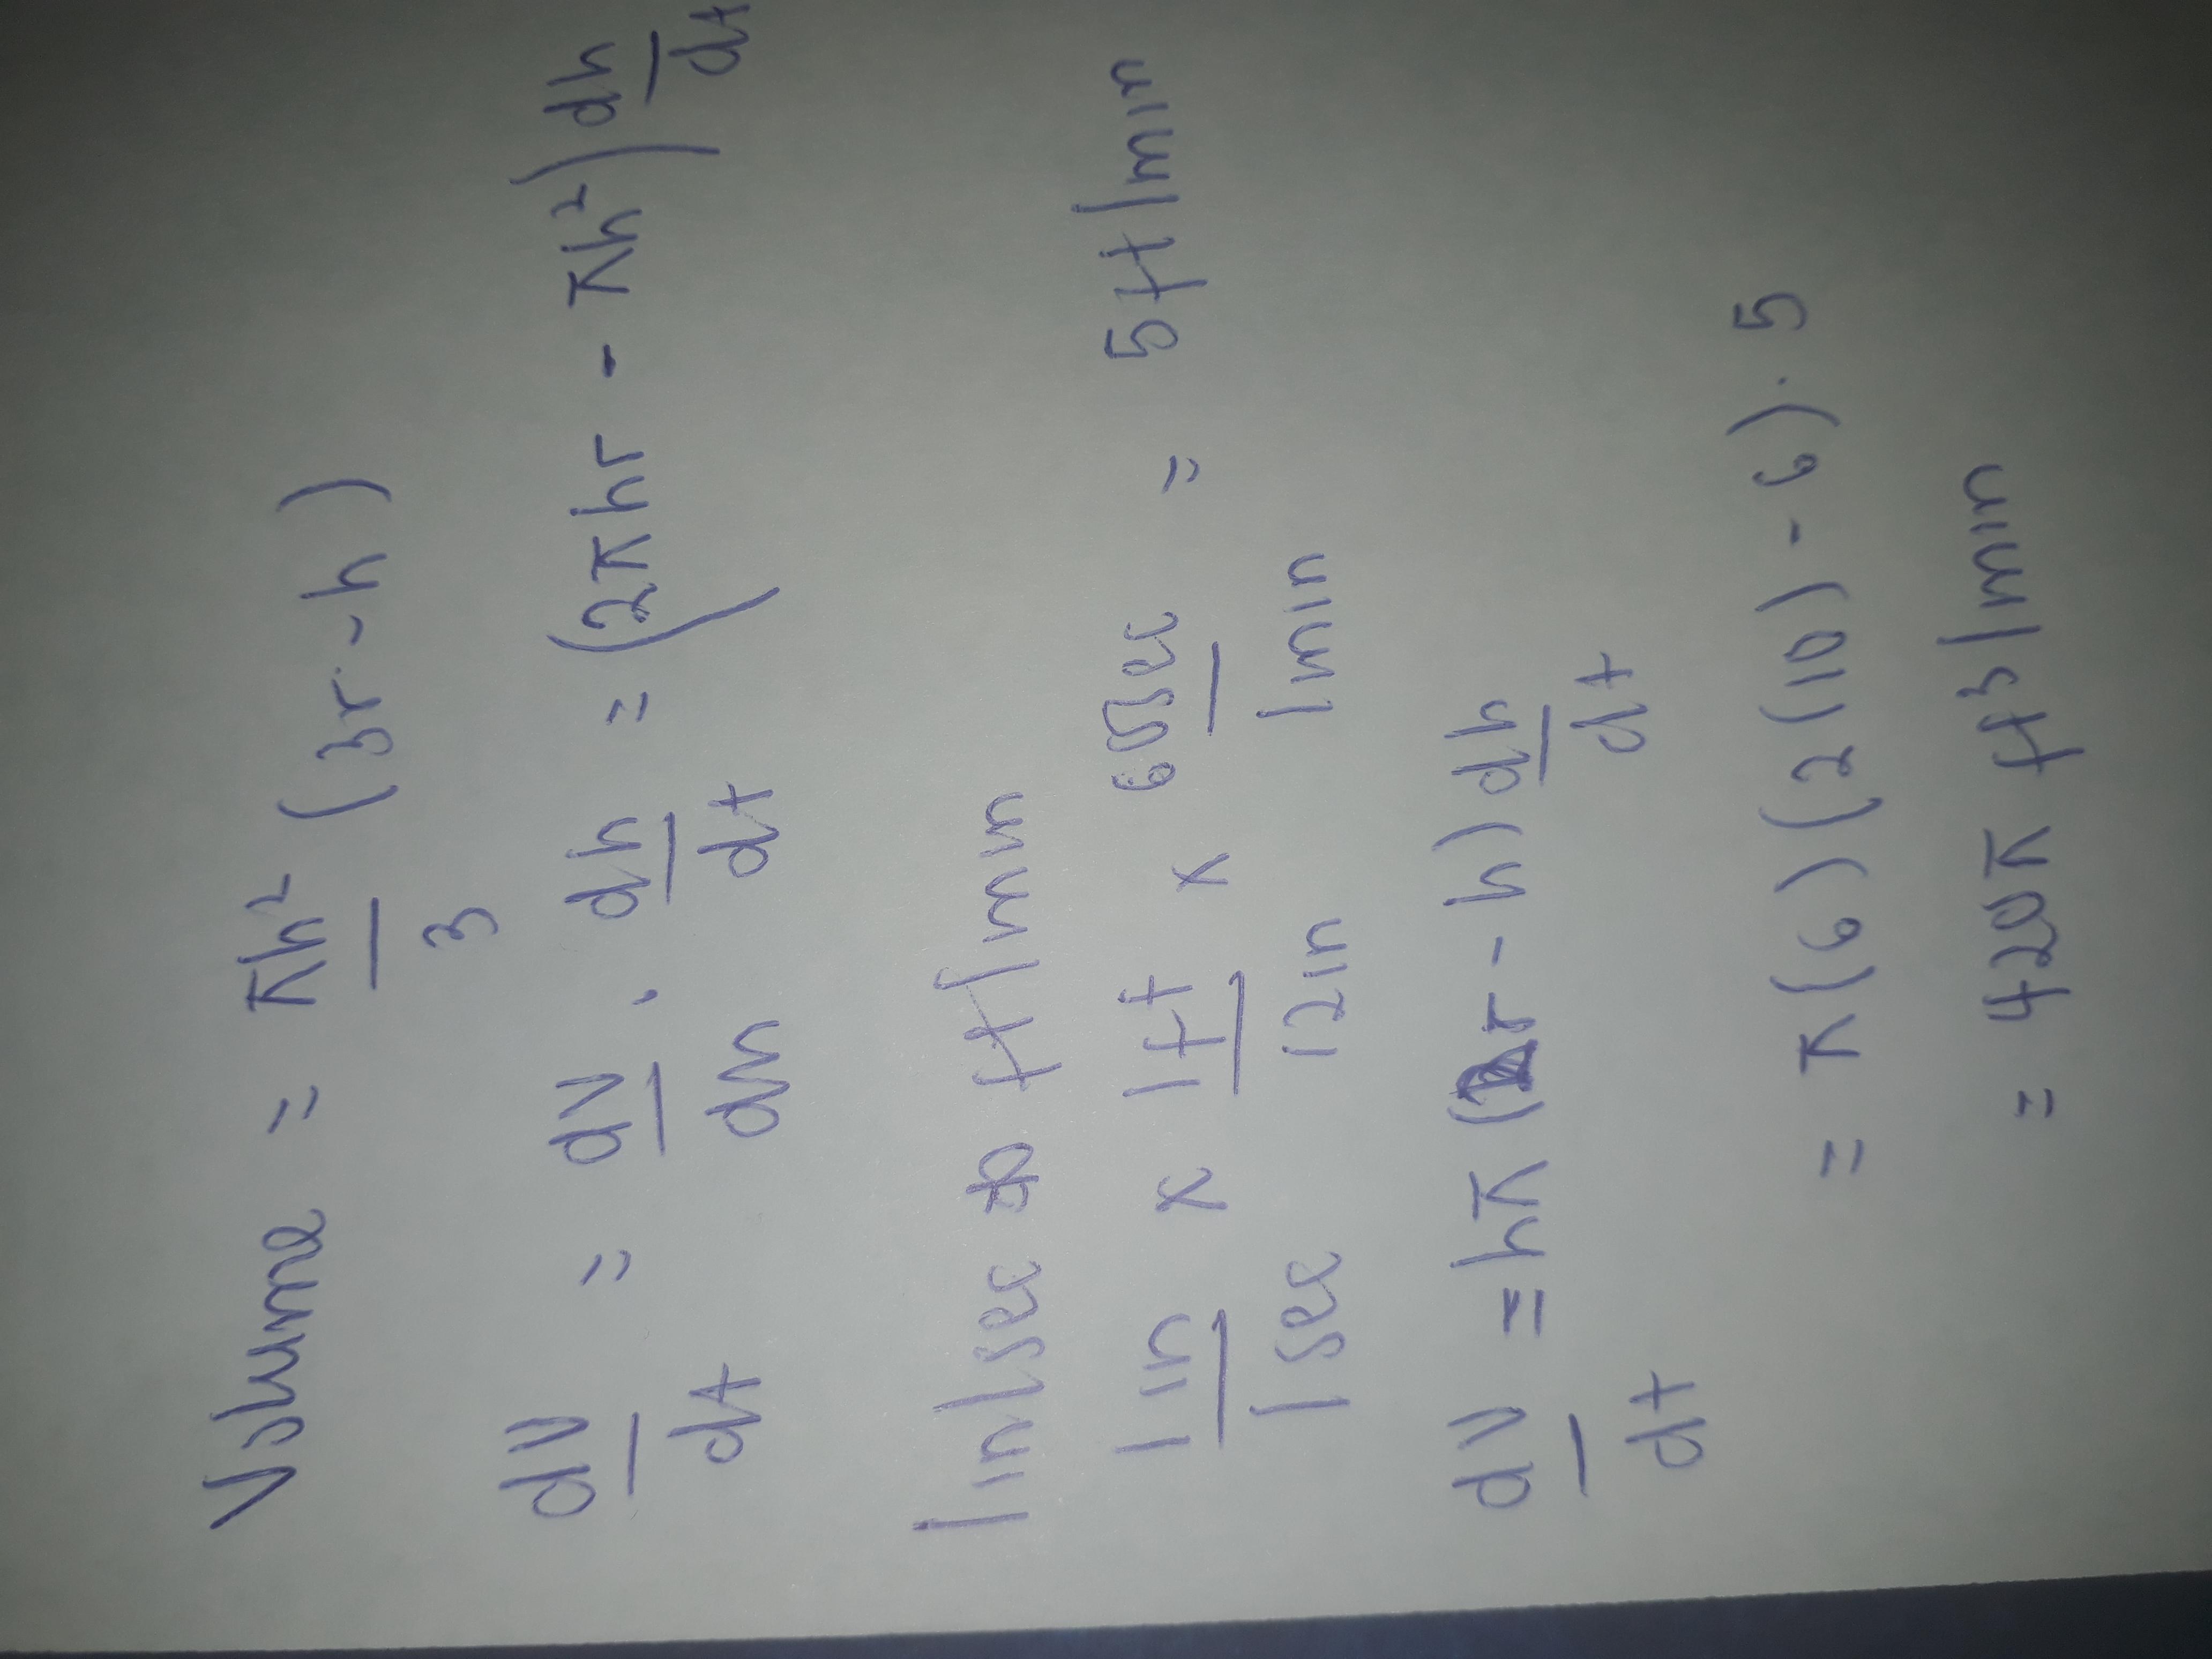 Volume = πh²/3 (3r-h)
dV/dt = dV/dh · dh/dt = (2πhr - πh²) dh/dt
1in/sec → ft/min
1in/1sec x 1ft/12in x 60sec/1min = 5ft/min
dV/dt = hπ(2r-h) dh/dt
= π(6)(2(10)-6)·5
= 420π ft³/min